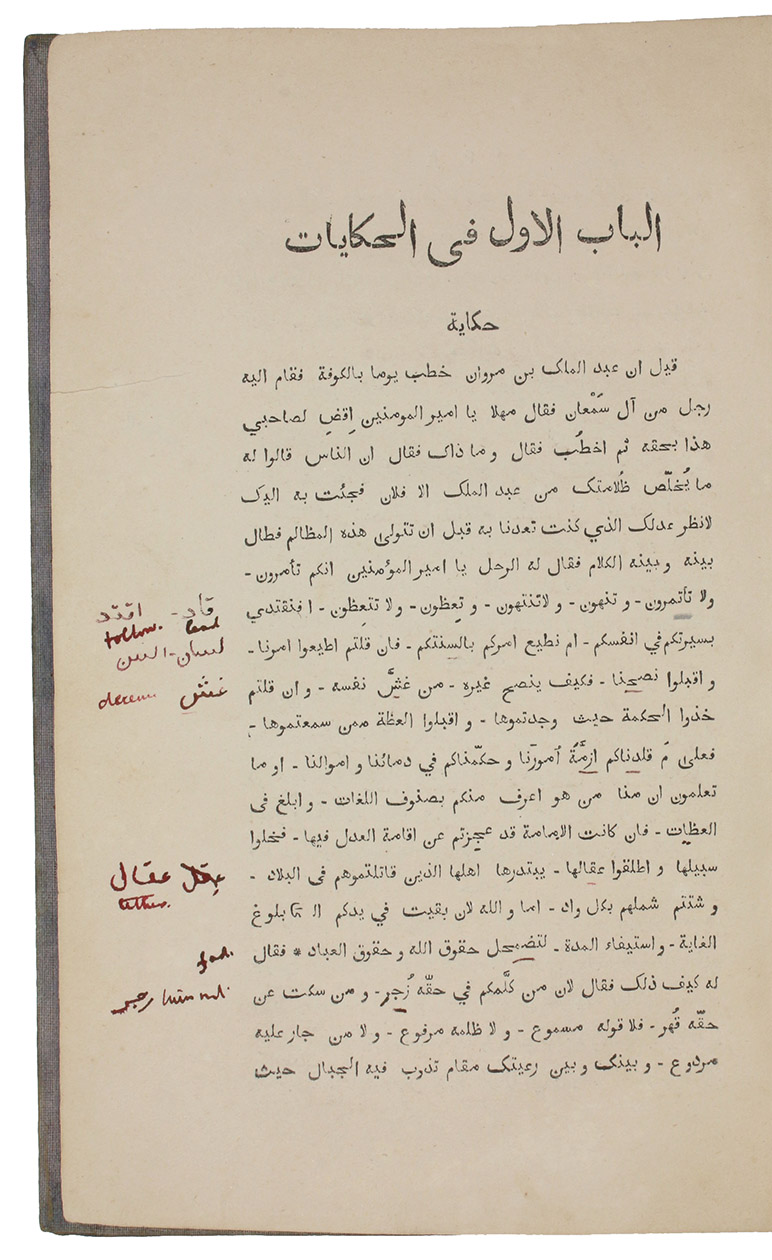 الباب الاول فى الحكايات
حكاية
قيل ان عبد الملك بن مروان خطب يوما بالكوفة فقام اليه
رجل من آل سَمْعان فقال مهلا يا امير المومنين اِقضِ لصاحبي
هذا بحقه ثم اخطُب فقال وما ذاك فقال ان الناس قالوا له
ما يُخلّص ظُلامتك من عبد الملك الا فلان فجئت به اليك
لانظر عدلك الذي كنت تعدنا به قبل ان تتولى هذه المظالم فطال
بينه وبينه الكلام فقال له الرجل يا امير المؤمنين انكم تأمرون -
ولا تأتمرون - وتنهون - ولا تنتهون - وتعظون - ولا تتعظون - افنقتدي
بسيرتكم في انفسكم - ام نطيع امركم بالسنتكم - فان قلتم اطيعوا امرنا -
واقبلوا نصحنا - فكيف ينصح غيره - من غشَّ نفسه - وان قلتم
خذوا الحكمة حيث وجدتموها - واقبلوا العظة ممن سمعتموها -
فعلى مَ قلدناكم ازمَّةَ اُمورنا وحكّمناكم في دمائنا واموالنا - او ما
تعلمون ان منا من هو اعرف منكم بصنوف اللغات - وابلغ فى
العظات - فان كانت الامامة قد عجزتم عن اقامة العدل فيها - فخلوا
سبيلها واطلقوا عقالها - يبتدرها اهلها الذين قاتلتموهم فى البلاد -
وشتتم شملهم بكل واد - اما والله لان بقيت في يدكم الى بلوغ
الغاية - واستيفاء المدة - لتضمحل حقوق الله وحقوق العباد * فقال
له كيف ذلك فقال لان من كلَّمكم في حقّه زُجر - ومن سكت عن
حقّه قُهر - فلا قوله مسموع - ولا ظلمه مرفوع - ولا من جار عليه
مردوع - وبينك وبين رعيتك مقام تذوب فيه الجبال حيث
قاد - اقتد
follow. lead
لسان - السن
غشّ
عقل عقال
tether.
fade.
زجر